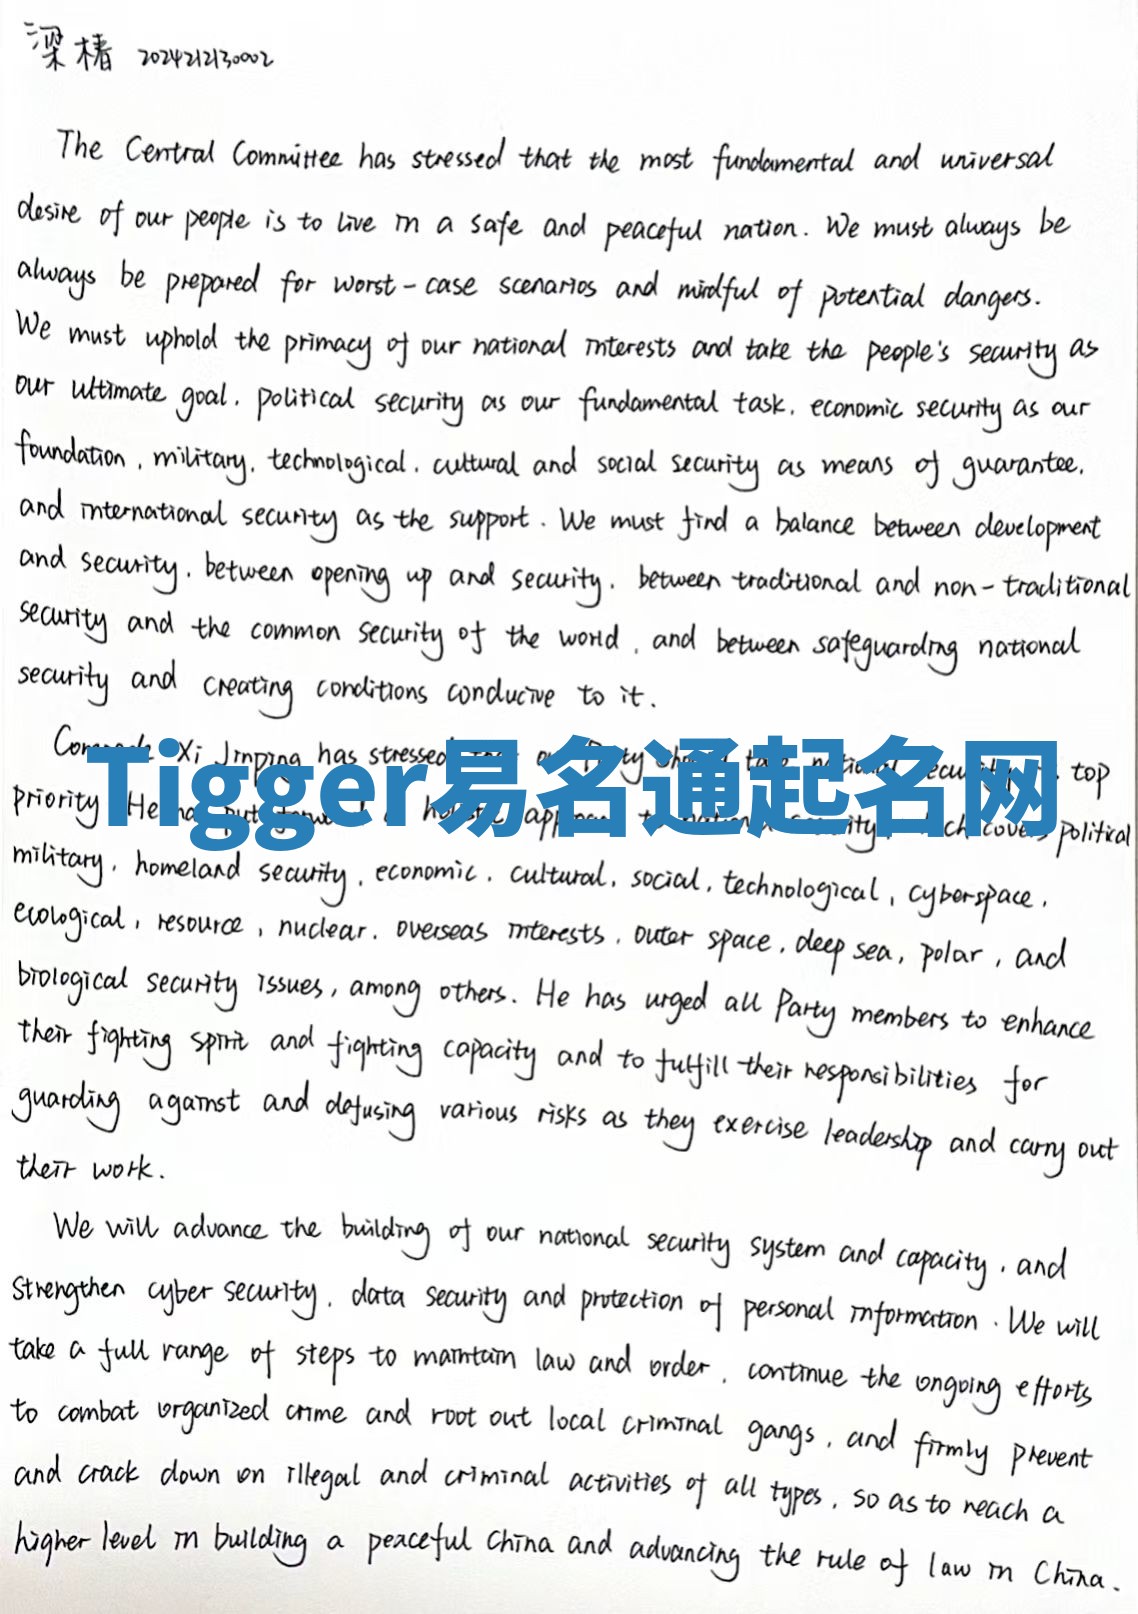 梁椿 2024212130002
The Central Committee has stressed that the most fundamental and universal
desire of our people is to live in a safe and peaceful nation. We must always be
always be prepared for worst-case scenarios and mindful of potential dangers.
We must uphold the primacy of our national interests and take the people's security as
our ultimate goal, political security as our fundamental task, economic security as our
foundation, military, technological, cultural and social security as means of guarantee,
and international security as the support. We must find a balance between development
and security, between opening up and security, between traditional and non-traditional
security and the common security of the world, and between safeguarding national
security and creating conditions conducive to it.
Xi Jinping has stressed top
priority. He political
Tigger易名通起名网
military, homeland security, economic, cultural, social, technological, cyberspace,
ecological, resource, nuclear, overseas interests, outer space, deep sea, polar, and
biological security issues, among others. He has urged all Party members to enhance
their fighting spirit and fighting capacity and to fulfill their responsibilities for
guarding against and defusing various risks as they exercise leadership and carry out
their work.
We will advance the building of our national security system and capacity, and
strengthen cyber security, data security and protection of personal information. We will
take a full range of steps to maintain law and order, continue the ongoing efforts
to combat organized crime and root out local criminal gangs, and firmly prevent
and crack down on illegal and criminal activities of all types, so as to reach a
higher level in building a peaceful China and advancing the rule of law in China.